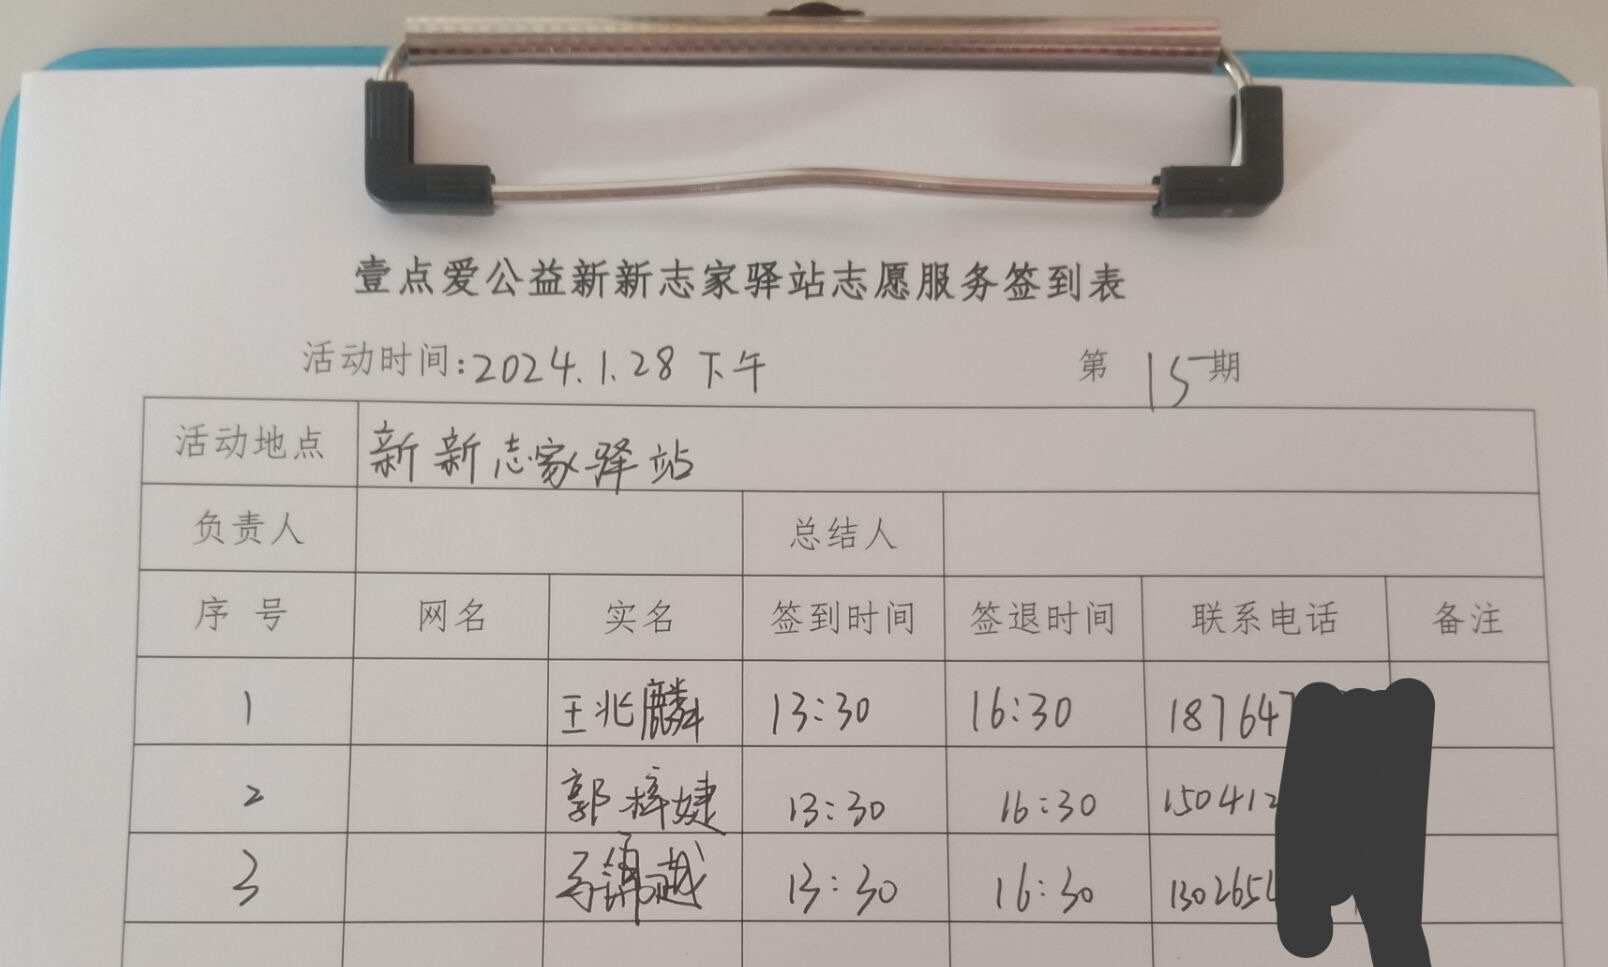 壹点爱公益新新志家驿站志愿服务签到表
活动时间:2024.1.28 下午 第 15 期
活动地点 新新志家驿站
负责人 总结人
序号 网名 实名 签到时间 签退时间 联系电话 备注
1 王兆麟 13:30 16:30 187647
2 郭梓婕 13:30 16:30 150412
3 马锦越 13:30 16:30 130265